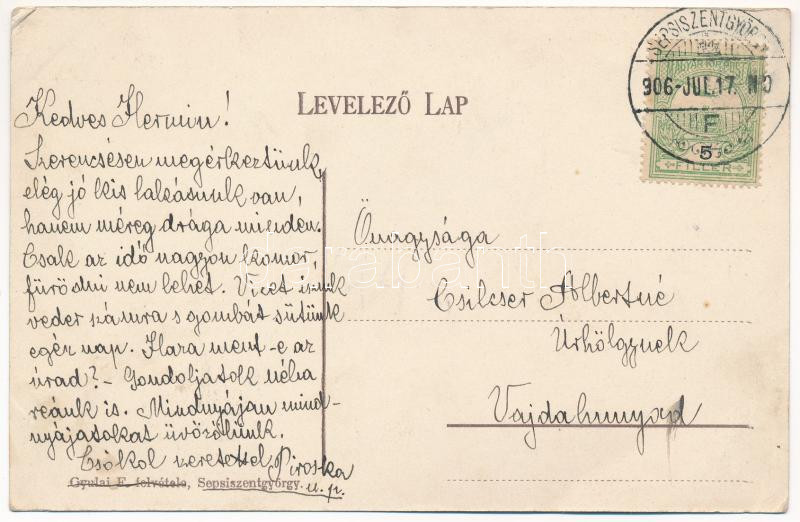 SEPSISZENTGYÖR
906-JUL.17. NO
F
5
MAGYAR KIR. POSTA
FILLÉR
LEVELEZŐ LAP
Kedves Hermin!
Szerencsésen megérkeztünk,
elég jó kis lakásunk van,
hanem méreg drága minden.
Csak az idő nagyon komor,
fürödni nem lehet. Vizet iszunk
veder számra s gombát sütünk
egész nap. Haza ment-e az
urad? - Gondoljatok néha
reánk is. Mindnyájan mind-
nyájatokat üdvözlünk.
Csókol szeretettel Piroska
u.p.
Gyulai F. felvétele, Sepsiszentgyörgy.
Őnagysága
Csilcser Albertné
Úrhölgynek
Vajdahunyad
darabanth